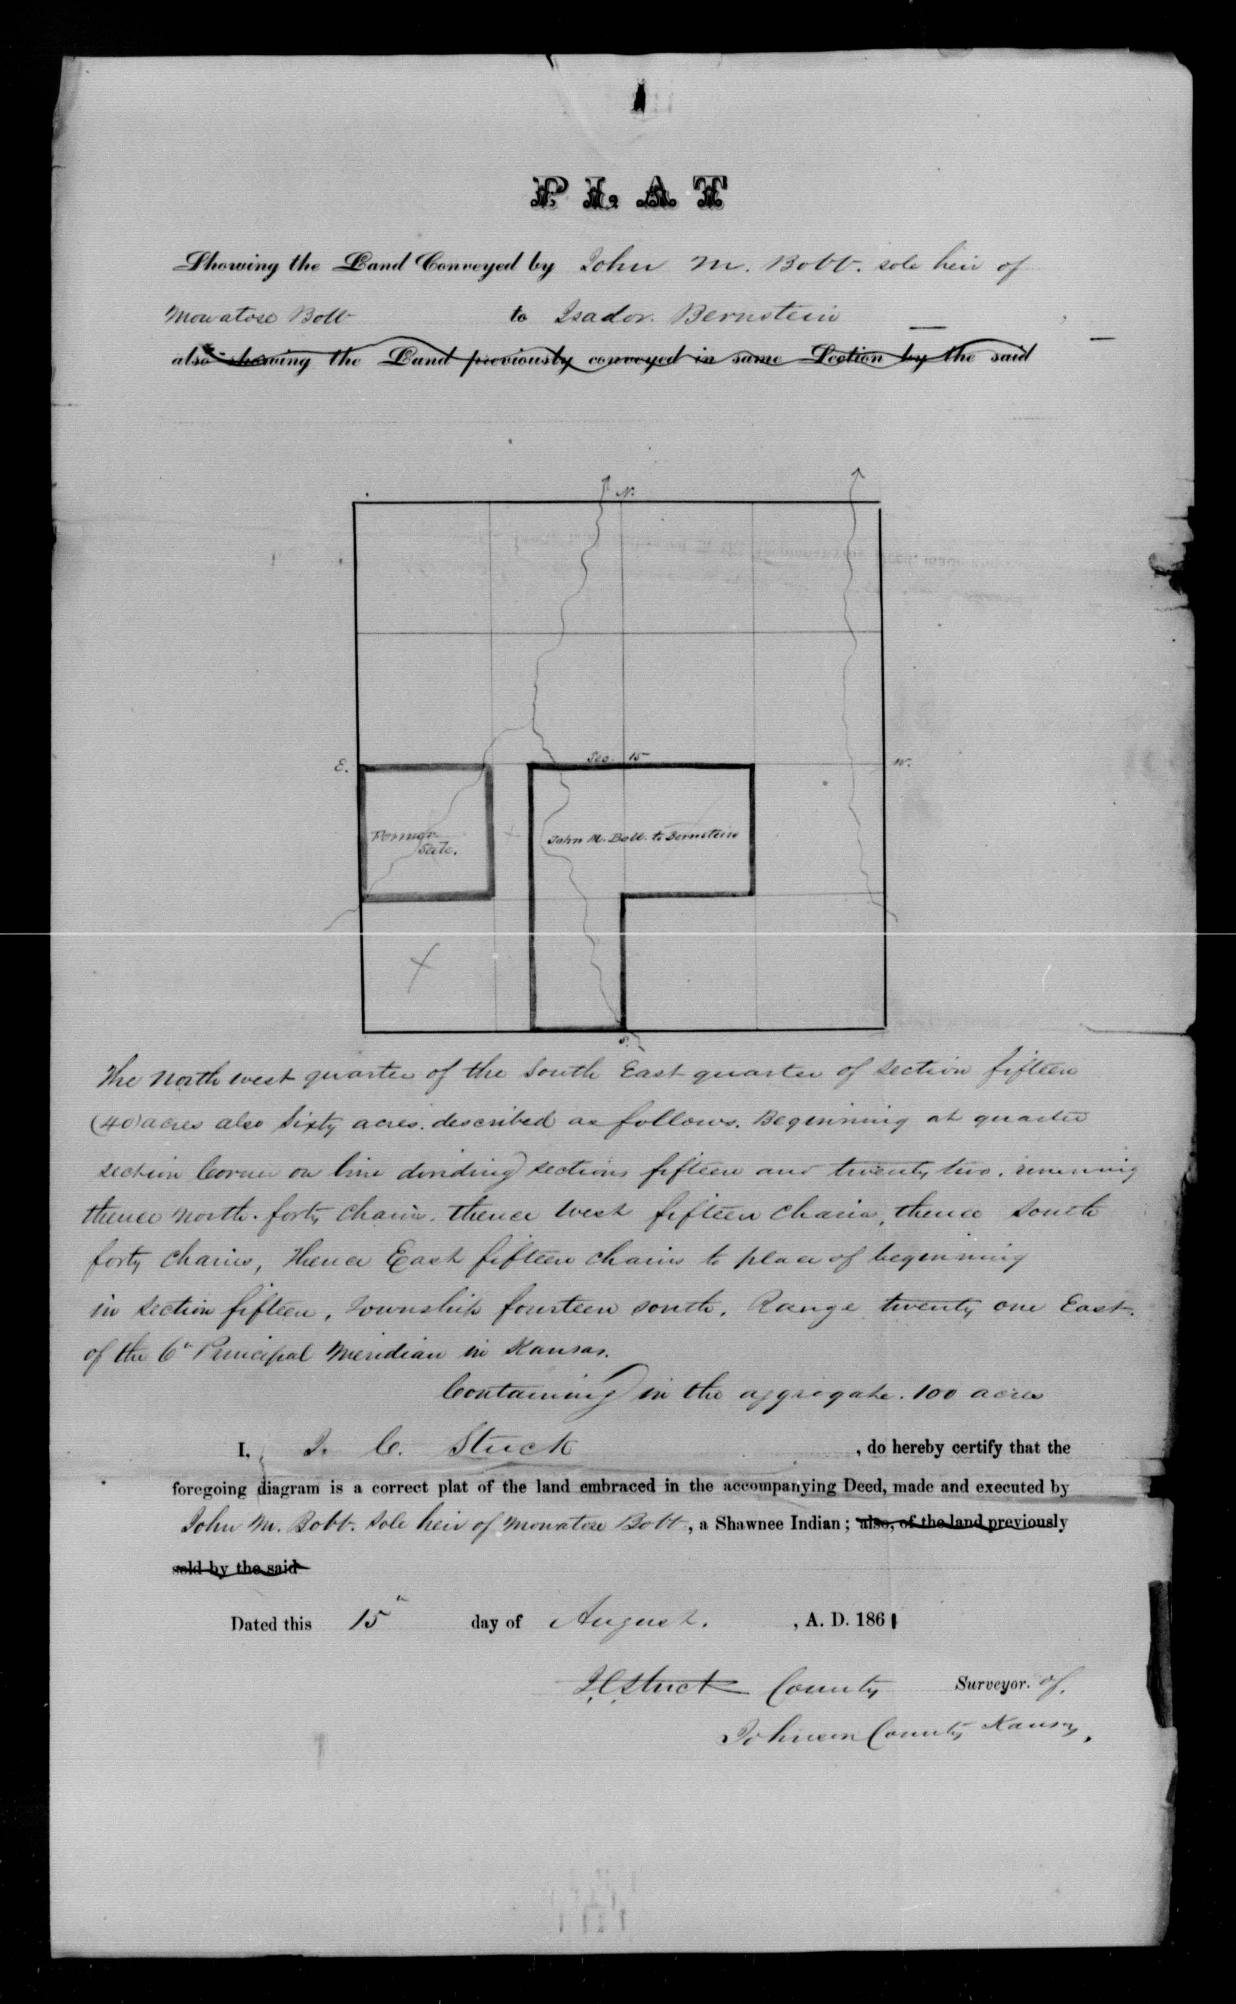 PLAT
Showing the Land Conveyed by John M. Bobb. sole heir of
Mowatose Bobb to Isador. Bernstein
also showing the Land previously conveyed in same Section by the said
N.
E.
Sec. 15
W.
Former
Sale.
John M. Bobb. to Bernstein
S.
The North west quarter of the South East quarter of section fifteen
(40) acres also Sixty acres. described as follows. Beginning at quarter
section Corner on line dividing sections fifteen and twenty two. running
thence North. forty chains. thence West fifteen chains, thence South
forty chains, thence East fifteen chains to place of beginning
in section fifteen, Township fourteen south. Range twenty one East.
of the 6" Principal Meridian in Kansas.
Containing in the aggregate. 100 acres
I, J. C. Stuck, do hereby certify that the
foregoing diagram is a correct plat of the land embraced in the accompanying Deed, made and executed by
John M. Bobb. sole heir of Mowatose Bobb, a Shawnee Indian; also, of the land previously
sold by the said
Dated this 15" day of August., A. D. 1861
J. C. Stuck County Surveyor. of.
Johnson County Kansas.